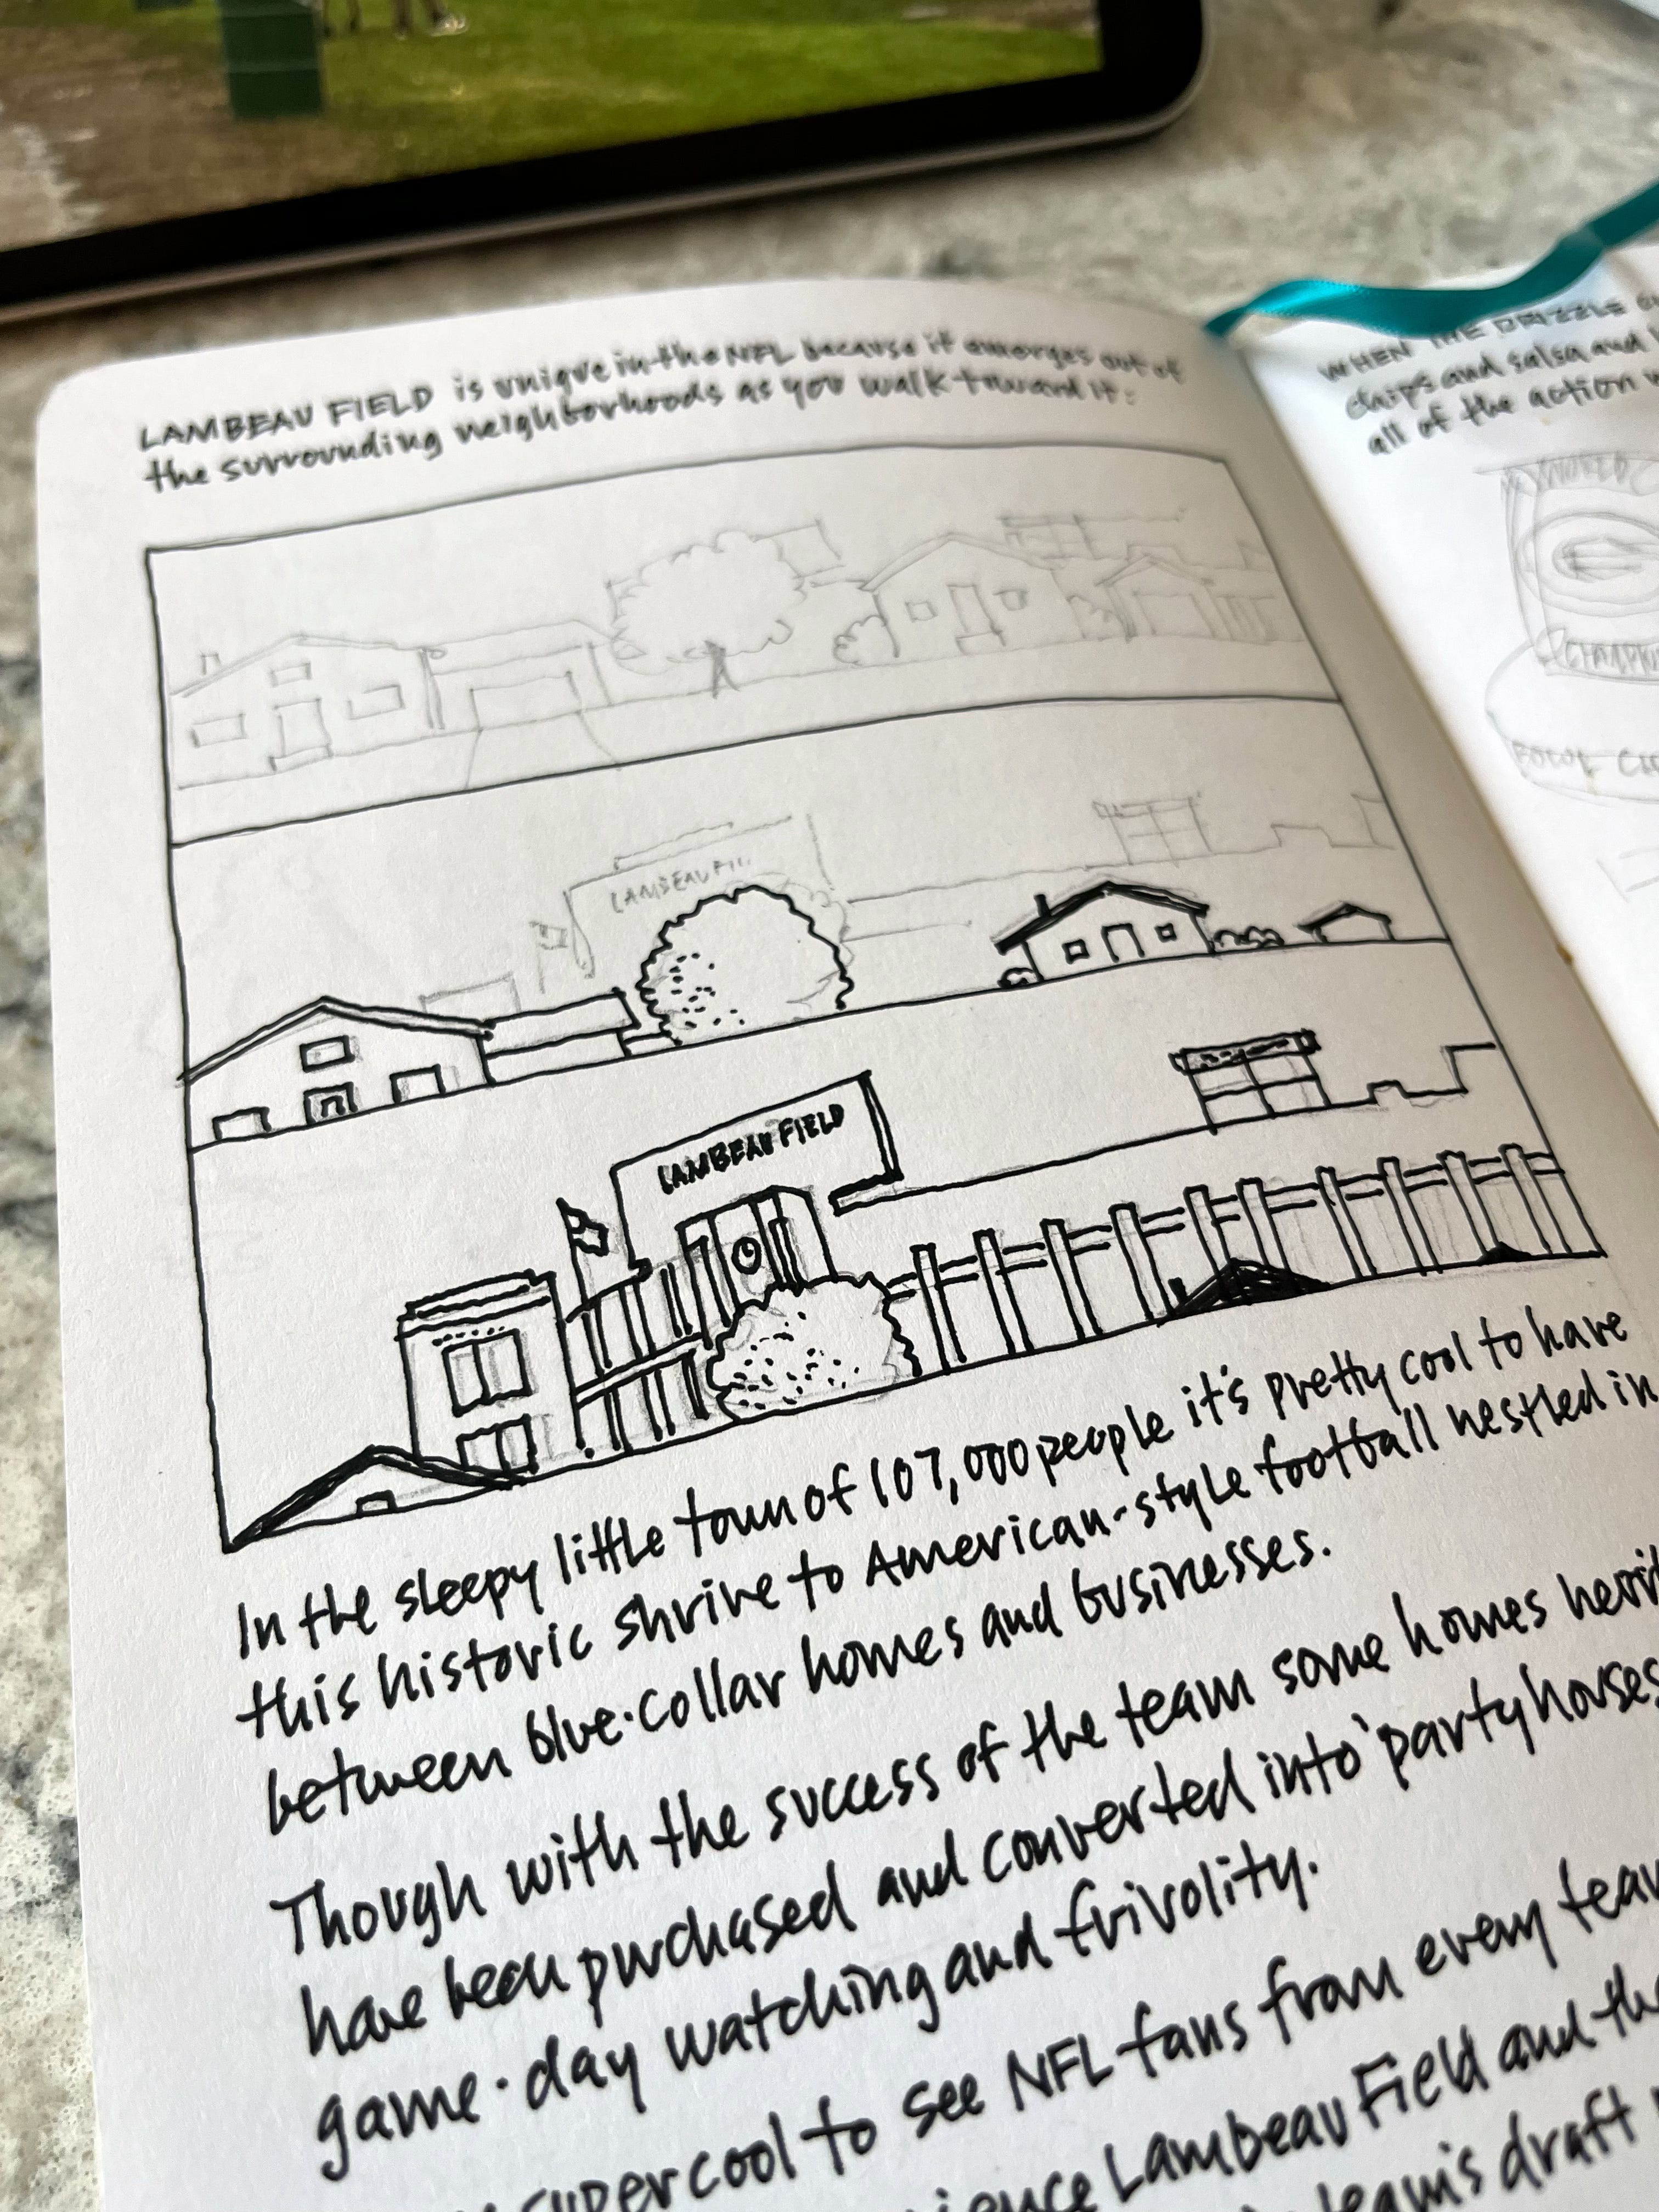 LAMBEAU FIELD is unique in the NFL because it emerges out of
the surrounding neighborhoods as you walk toward it:
LAMBEAU FI
LAMBEAU FIELD
In the sleepy little town of 107,000 people it's pretty cool to have
this historic shrine to American-style football nestled in
between blue-collar homes and businesses.
Though with the success of the team some homes
have been purchased and converted into 'party houses
game-day watching and frivolity.
super cool to see NFL fans from every team
Lambeau Field and the
team's draft
WHEN THE DRIZZLE
chips and salsa and
all of the action
WORLD
CHAMPIO
BOWL CH